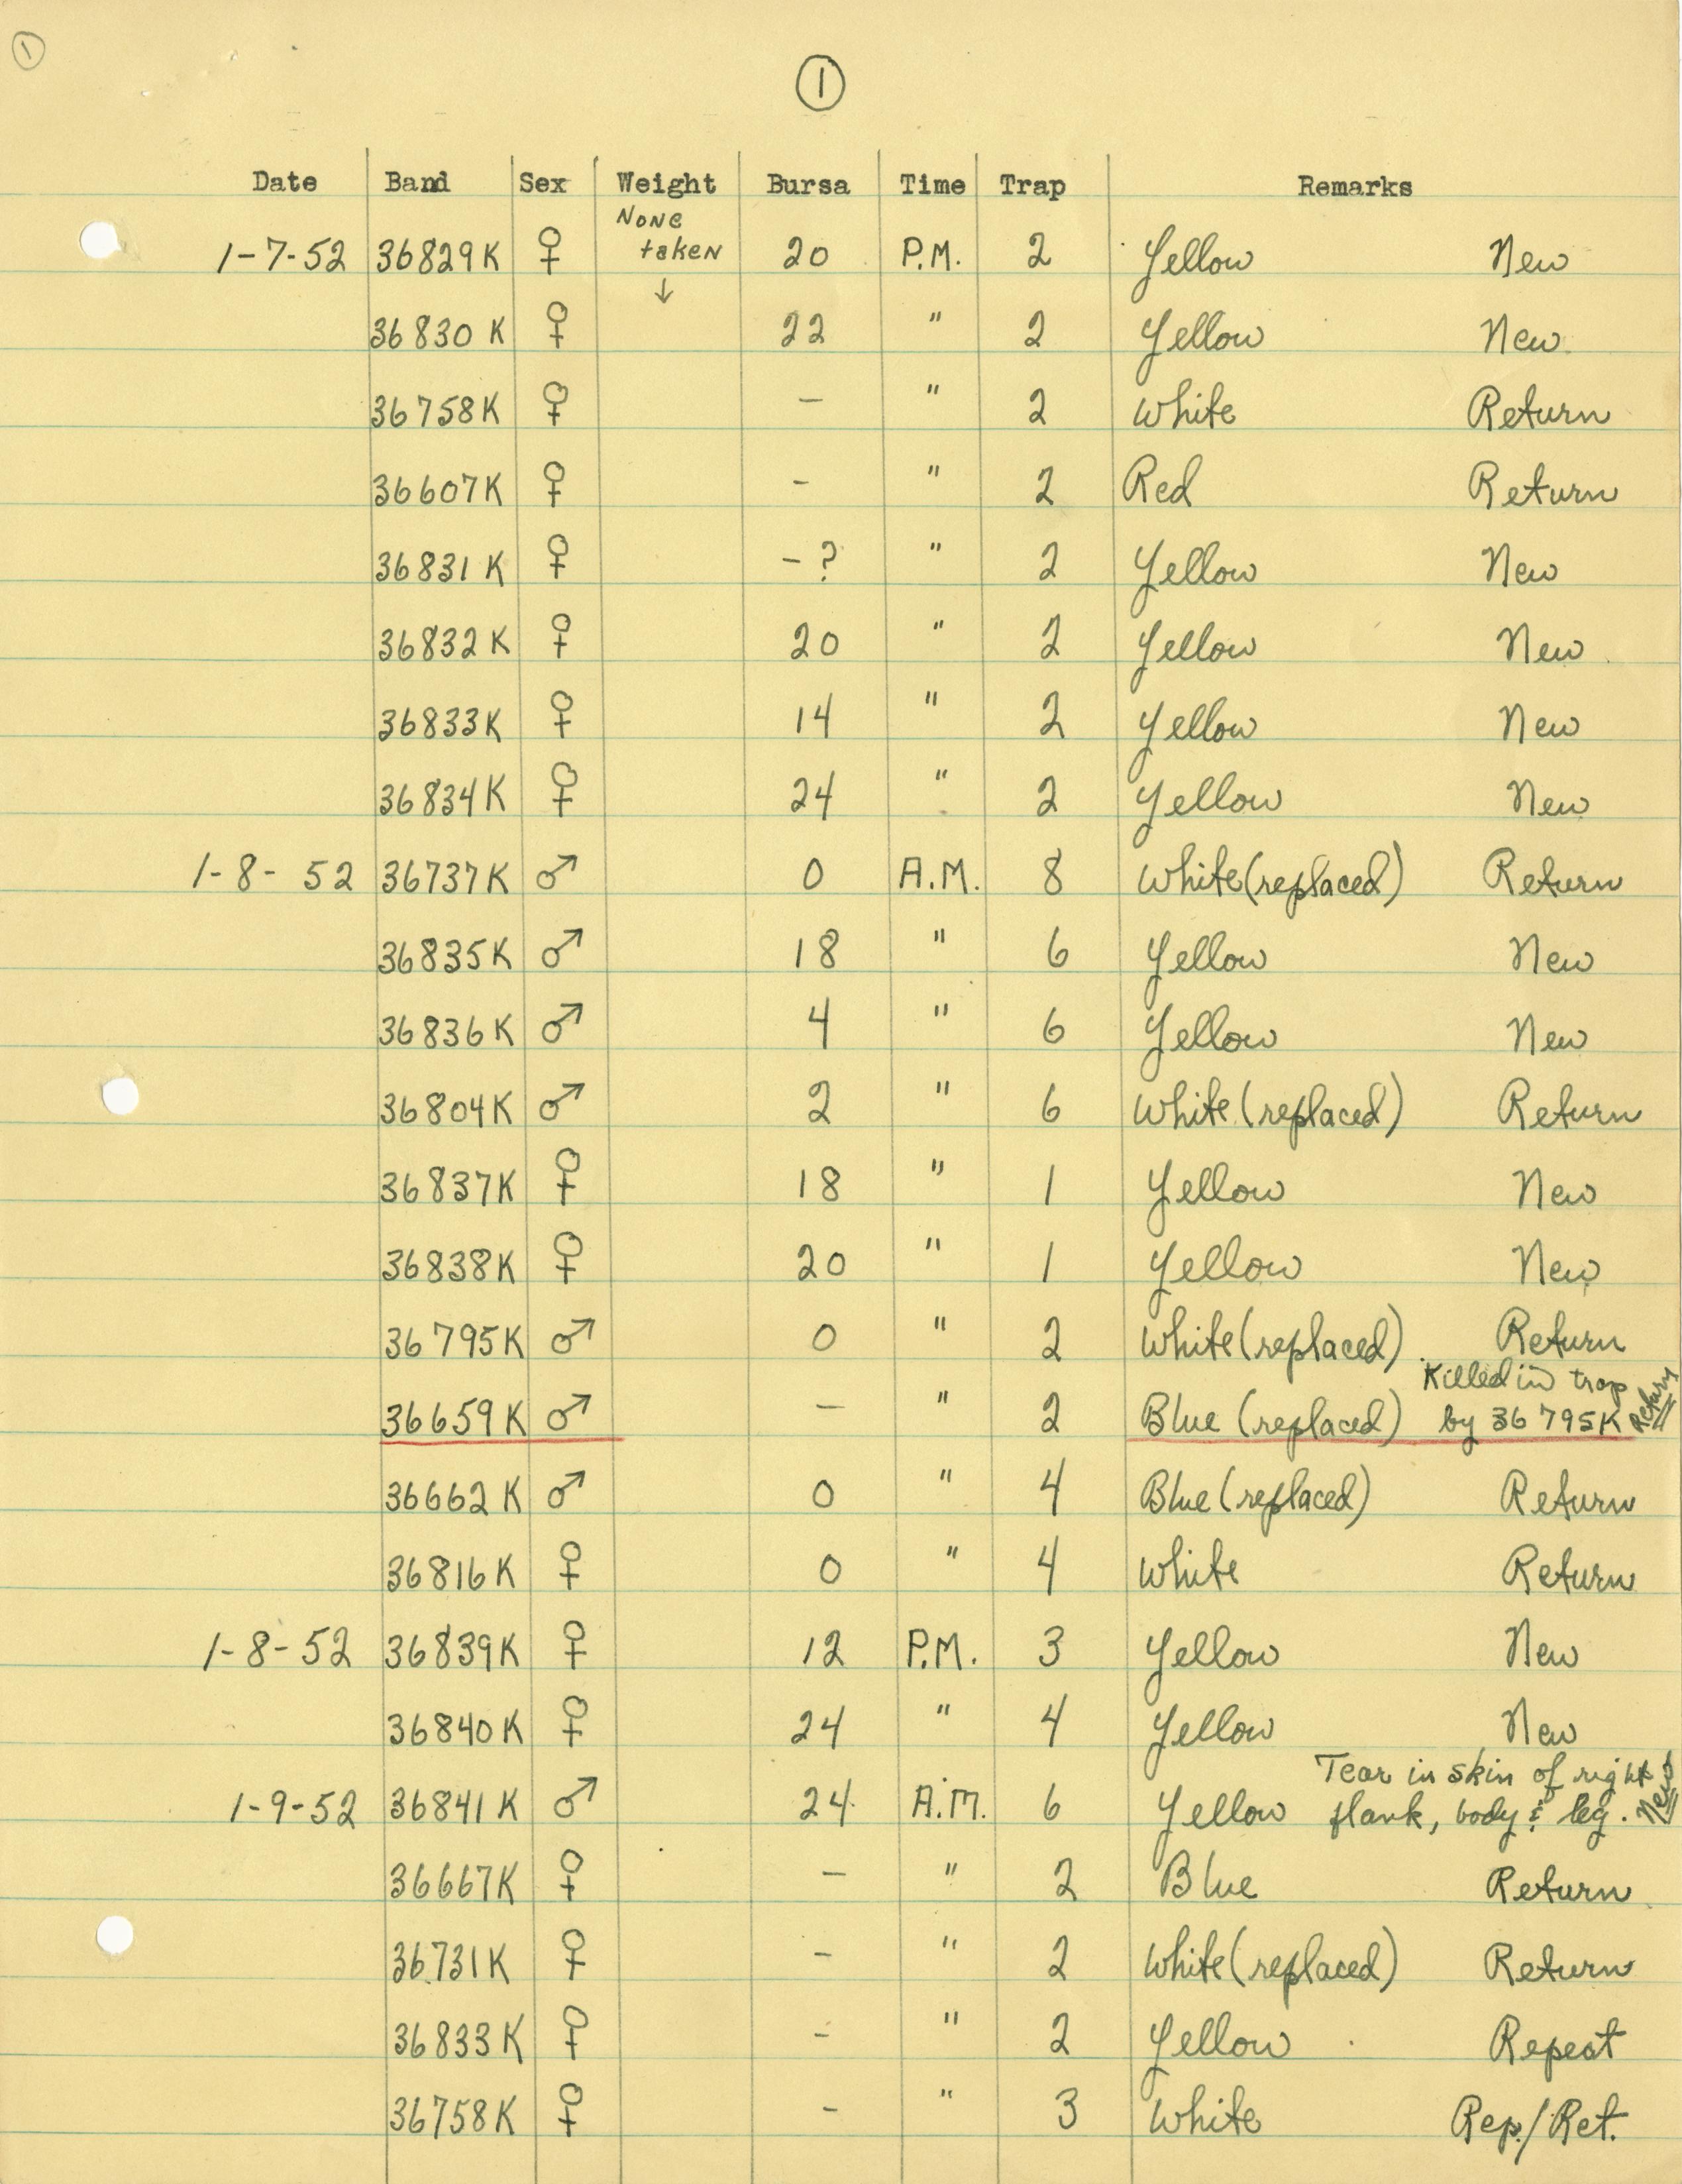 1
1
Date Band Sex Weight Bursa Time Trap Remarks
None
1-7-52 36829K ♀ taken 20 P.M. 2 Yellow New
↓
36830 K ♀ 22 " 2 Yellow New
36758K ♀ - " 2 White Return
36607K ♀ - " 2 Red Return
36831 K ♀ - ? " 2 Yellow New
36832 K ♀ 20 " 2 Yellow New
36833K ♀ 14 " 2 Yellow New
36834K ♀ 24 " 2 Yellow New
1-8-52 36737K ♂ 0 A.M. 8 White (replaced) Return
36835K ♂ 18 " 6 Yellow New
36836K ♂ 4 " 6 Yellow New
36804K ♂ 2 " 6 White (replaced) Return
36837K ♀ 18 " 1 Yellow New
36838K ♀ 20 " 1 Yellow New
36795K ♂ 0 " 2 White (replaced) Return
Killed in trap
36659K ♂ - " 2 Blue (replaced) by 36795K Return
36662 K ♂ 0 " 4 Blue (replaced) Return
36816K ♀ 0 " 4 White Return
1-8-52 36839K ♀ 12 P.M. 3 Yellow New
36840K ♀ 24 " 4 Yellow New
Tear in skin of right
1-9-52 36841K ♂ 24 A.M. 6 Yellow flank, body & leg. New
36667K ♀ - " 2 Blue Return
36731K ♀ - " 2 White (replaced) Return
36833K ♀ - " 2 Yellow Repeat
36758K ♀ - " 3 White Rep./Ret.